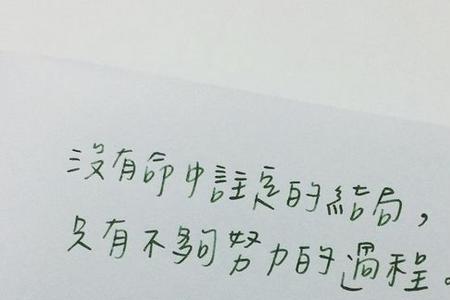 沒有命中註定的結局，
只有不夠努力的過程。